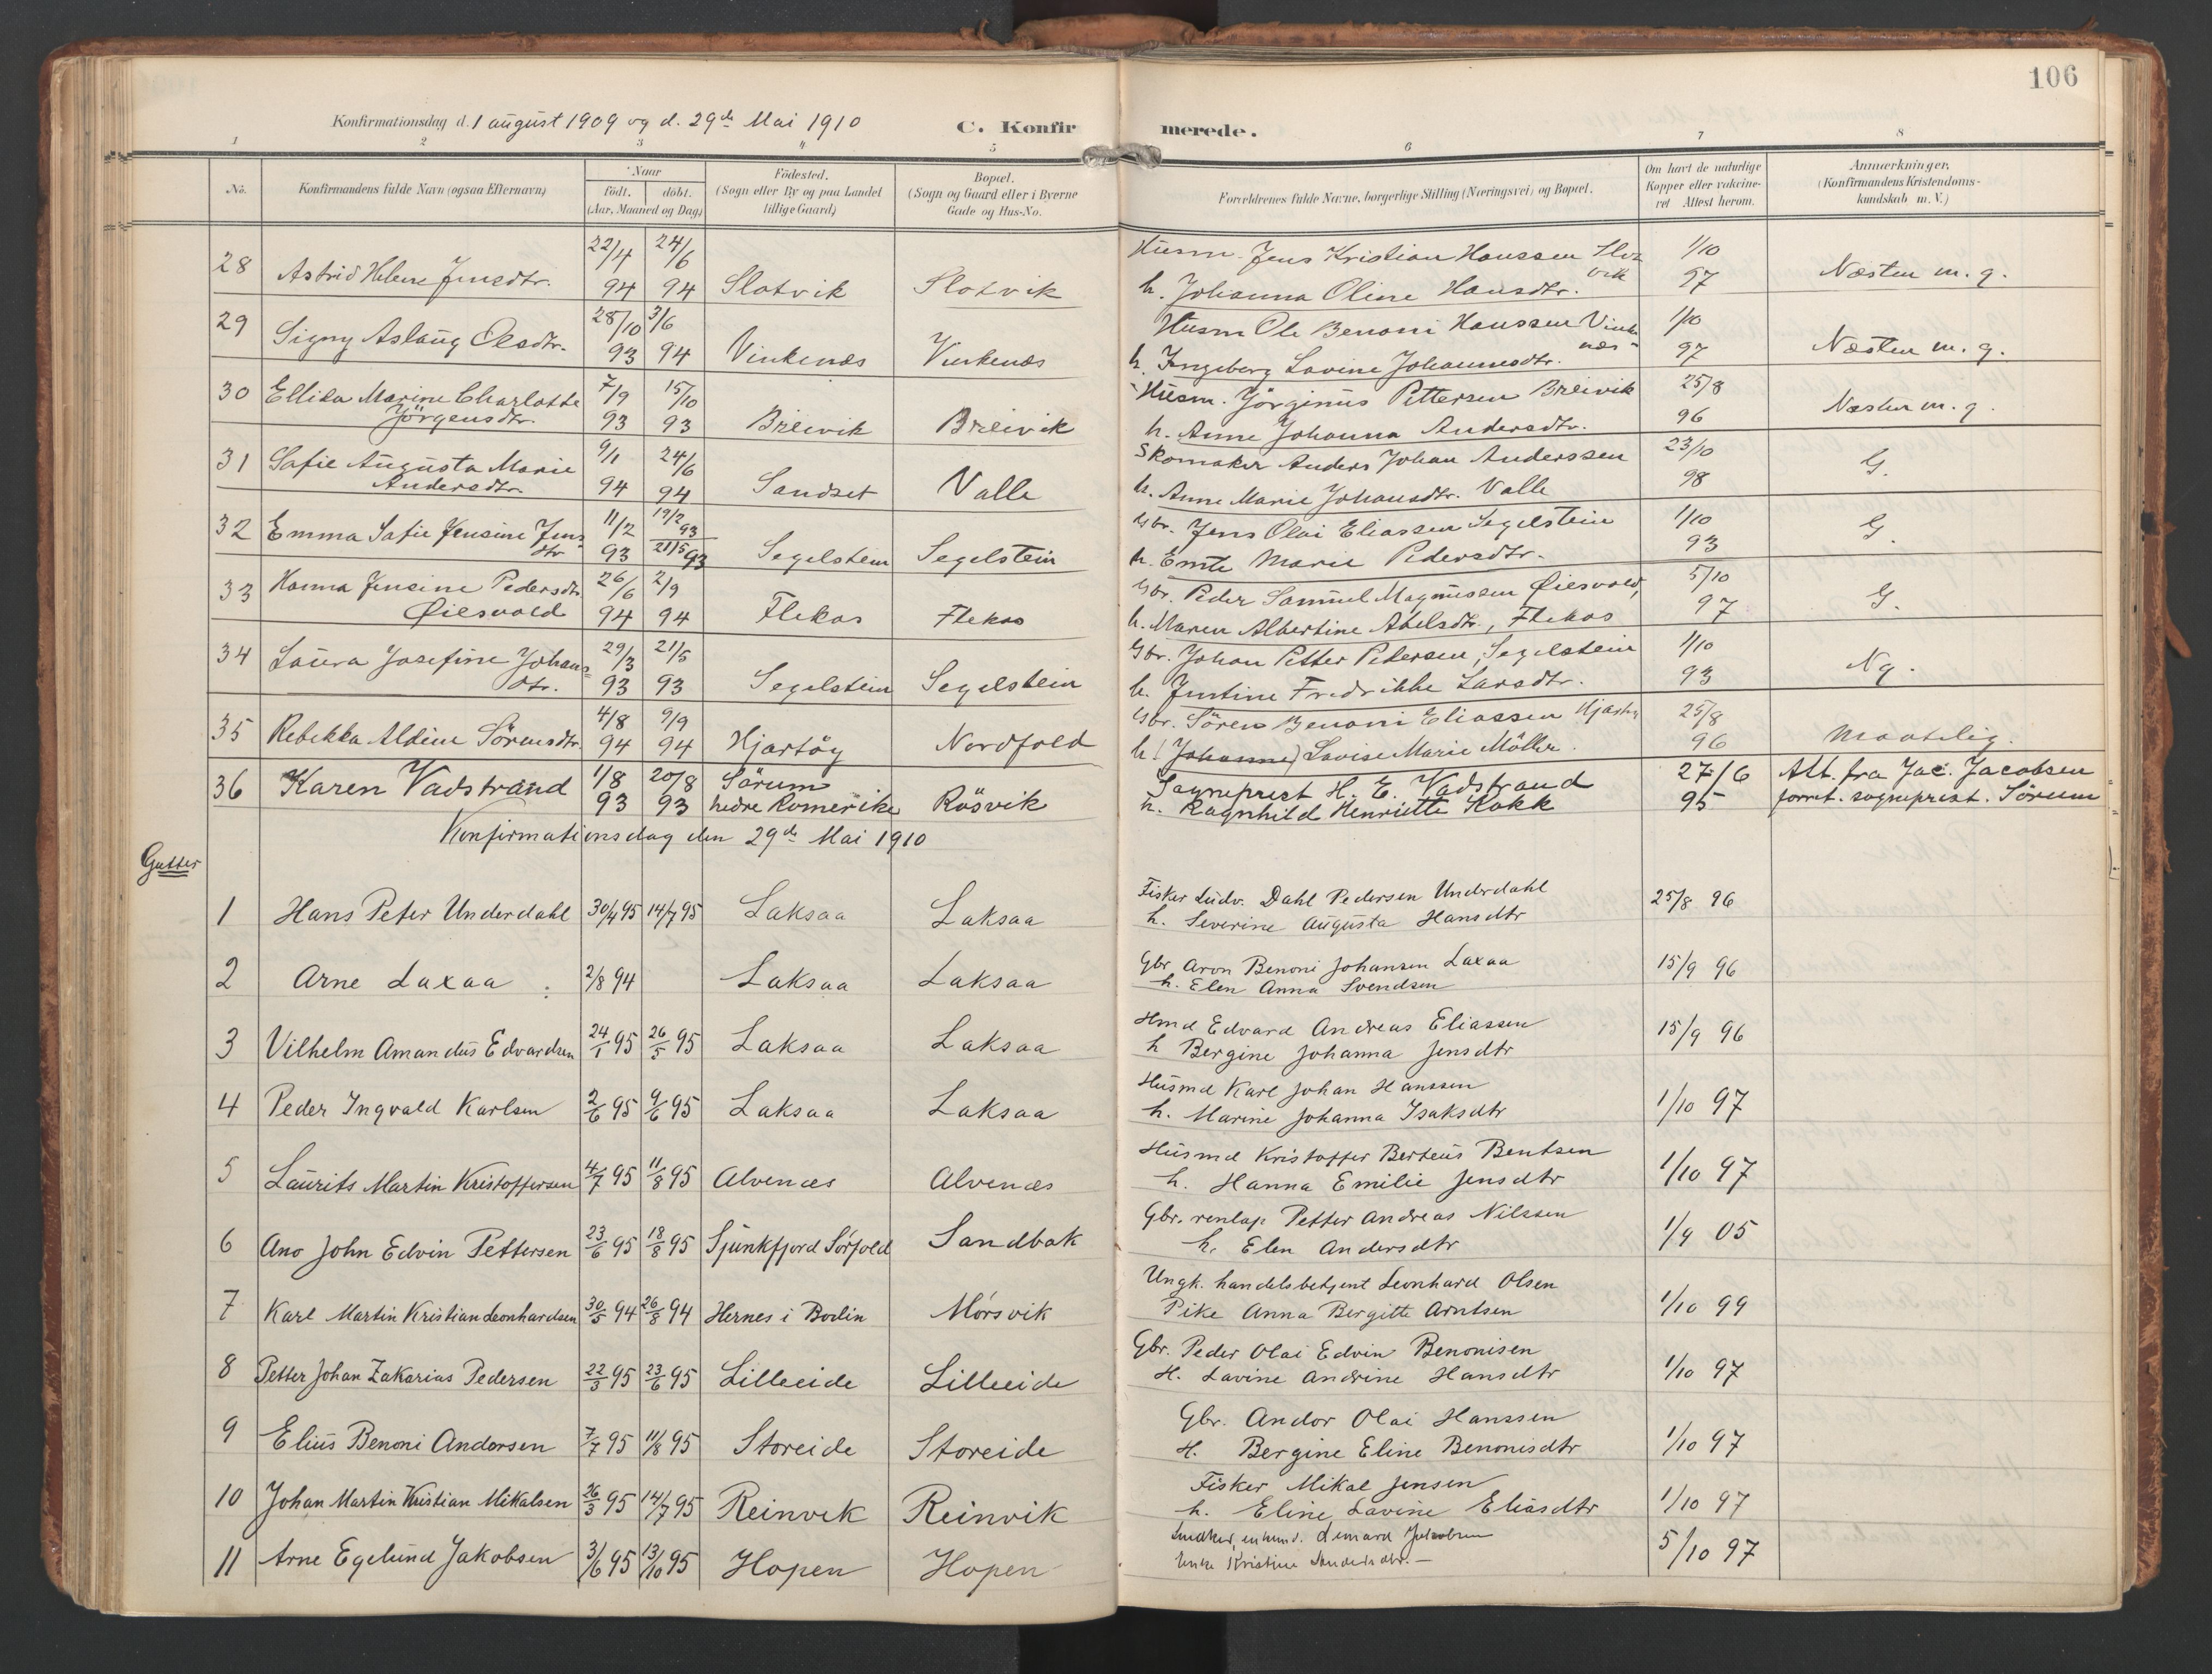 106
Konfirmationsdag d. 1 august 1909 og d. 29de Mai 1910
C. Konfirmerede.
1 2 3 4 5 6 7 8
No. Konfirmandens fulde Navn (ogsaa Efternavn) Naar født. døbt. (Aar, Maaned og Dag) Fødested. (Sogn eller By og paa Landet tillige Gaard) Bopæl. (Sogn og Gaard eller i Byerne Gade og Hus-No. Forældrenes fulde Navne, borgerlige Stilling (Næringsvei) og Bopæl. Om havt de naturlige Kopper eller vakcineret Attest herom. Anmærkninger. (Konfirmandens Kristendomskundskab m. V.)
28 Astrid Helene Jensdtr. 22/4 94 24/6 94 Slotvik Slotvik Husm. Jens Kristian Hanssen Slotvik 1/10 97 Næsten m. g.
h. Johanna Oline Hansdtr.
29 Signy Aslaug Olsdtr. 28/10 93 3/6 94 Vinkenæs Vinkenæs Husm Ole Benoni Hanssen Vinkenæs 1/10 97 Næsten m. g.
h. Ingeborg Lovine Johannesdtr.
30 Ellida Marine Charlotte Jörgensdtr. 7/9 93 15/10 93 Breivik Breivik Husm. Jörginus Pettersen Breivik 25/8 96 Næsten m. g.
h. Anne Johanna Andersdtr.
31 Sofie Augusta Marie Andersdtr. 9/1 94 24/6 94 Sandset Valle Skomaker Anders Johan Anderssen 23/10 98 G.
h. Anne Marie Johansdtr. Valle
32 Emma Sofie Jensine Jensdtr 11/2 93 19/2 93 21/5 93 Segelstein Segelstein Gbr. Jens Olai Eliassen Segelstein 1/10 93 G.
h. Emte Marie Pedersdtr.
33 Hanna Jensine Pedersdtr Øiesvold 26/6 94 2/9 94 Flekos Flekos Gbr. Peder Samuel Magnussen Øiesvold, 5/10 97 G.
h. Maren Albertine Abelsdtr., Flekos
34 Laura Josefine Johansdtr. 29/3 93 21/5 93 Segelstein Segelstein Gbr. Johan Petter Pedersen, Segelstein 1/10 93 Ng.
h. Justine Fredrikke Larsdtr.
35 Rebekka Aldine Sörensdtr. 4/8 94 9/9 94 Hjartöy Nordfold Gbr. Sören Benoni Eliassen Hjartøy 25/8 96 Maatelig.
h. (Johanne) Lovise Marie Möller.
36 Karen Vadstrand 1/8 93 20/8 93 Sörum nedre Romerike Rösvik Sogneprest H. E. Vadstrand 27/6 95 Att. fra Jac. Jacobsen
h. Ragnhild Henriette Kokk forret. sogneprest. Sörum
Konfirmationsdag den 29de Mai 1910
Gutter
1 Hans Peter Underdahl 30/4 95 14/7 95 Laksaa Laksaa Fisker Ludv. Dahl Pedersen Underdahl 25/8 96
h. Severine Augusta Hansdtr
2 Arne Laxaa 2/8 94 Laksaa Laksaa Gbr Aron Benoni Johansen Laxaa 15/9 96
h. Elen Anna Svendsen
3 Vilhelm Amandus Edvardsen 24/1 95 26/5 95 Laksaa Laksaa Hmd Edvard Andreas Eliassen 15/9 96
h Bergine Johanna Jensdtr
4 Peder Ingvald Karlsen 2/6 95 9/6 95 Laksaa Laksaa Husmd Karl Johan Hanssen 1/10 97
h. Marine Johanna Isaksdtr
5 Laurits Martin Kristoffersen 4/7 95 11/8 95 Alvenæs Alvenæs Husmd Kristoffer Berteus Bentsen 1/10 97
h. Hanna Emilie Jensdtr
6 Ano John Edvin Pettersen 23/6 95 18/8 95 Sjunkfjord Sörfold Sandbak Gbr. renlap Petter Andreas Nilssen 1/9 05
h. Elen Andersdtr
7 Karl Martin Kristian Leonhardsen 30/5 94 26/8 94 Hernes i Bodin Mørsvik Ungk. handelsbetjent Leonhard Olsen 1/10 99
Pike Anna Bergitte Arntsen
8 Petter Johan Zakarias Pedersen 22/3 95 23/6 95 Lilleeide Lilleeide Gbr. Peder Olai Edvin Benonisen 1/10 97
H. Lavine Andrine Hansdtr
9 Elius Benoni Andorsen 7/7 95 11/8 95 Storeide Storeide Gbr. Andor Olai Hanssen 1/10 97
H. Bergine Eline Benonisdtr
10 Johan Martin Kristian Mikalsen 26/3 95 14/7 95 Reinvik Reinvik Fisker Mikal Jensen 1/10 97
h. Eline Lavine Eliasdtr
11 Arne Egelund Jakobsen 3/6 95 13/10 95 Hopen Hopen Lenard Jakobsen 5/10 97
Enke Kristine